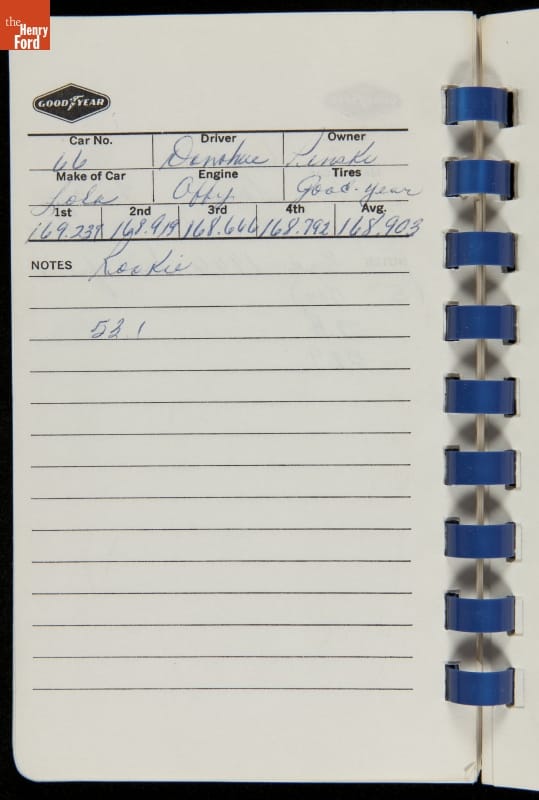 the Henry Ford
GOODYEAR
Car No. Driver Owner
66 Donohue Penske
Make of Car Engine Tires
Lola Offy Good-year
1st 2nd 3rd 4th Avg.
169.239 168.919 168.666 168.792 168.903
NOTES Rookie
53.1